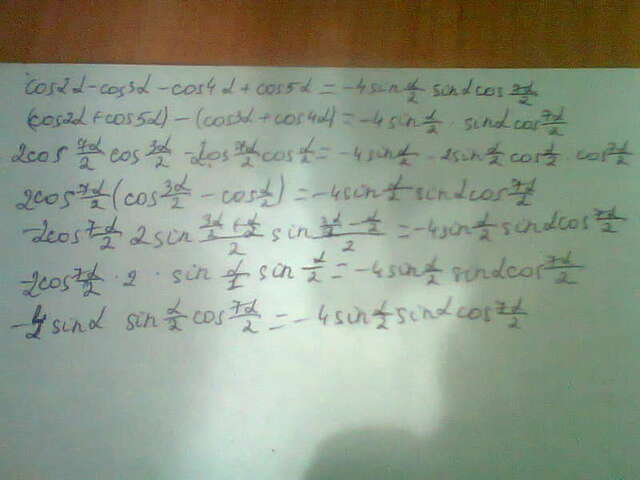 cos2α-cos3α-cos4α+cos5α=-4sin α/2 sinαcos 7α/2
(cos2α+cos5α)-(cos3α+cos4α)=-4sin α/2 · sinαcos 7α/2
2cos 7α/2 cos 3α/2 -2cos 7α/2 cos α/2=-4sin α/2 · 2sin α/2 cos α/2 · cos 7α/2
2cos 7α/2 (cos 3α/2 - cos α/2)=-4sin α/2 sinαcos 7α/2
-2cos 7α/2 2sin (3α/2+α/2)/2 sin (3α/2-α/2)/2=-4sin α/2 sinαcos 7α/2
-2cos 7α/2 · 2 · sin α/1 sin α/2=-4sin α/2 sinαcos 7α/2
-4 sinα sin α/2 cos 7α/2=-4sin α/2 sinαcos 7α/2